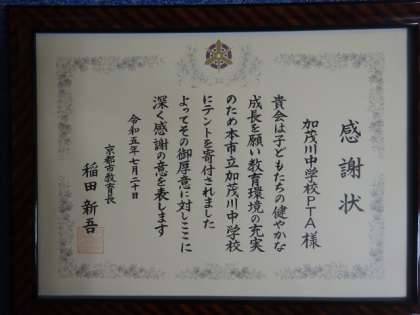 感謝状
加茂川中学校PTA様
貴会は子どもたちの健やかな
成長を願い教育環境の充実
のため本市立加茂川中学校
にテントを寄付されました
よってその御厚意に対しここに
深く感謝の意を表します
令和五年七月二十日
京都市教育長
稲田新吾